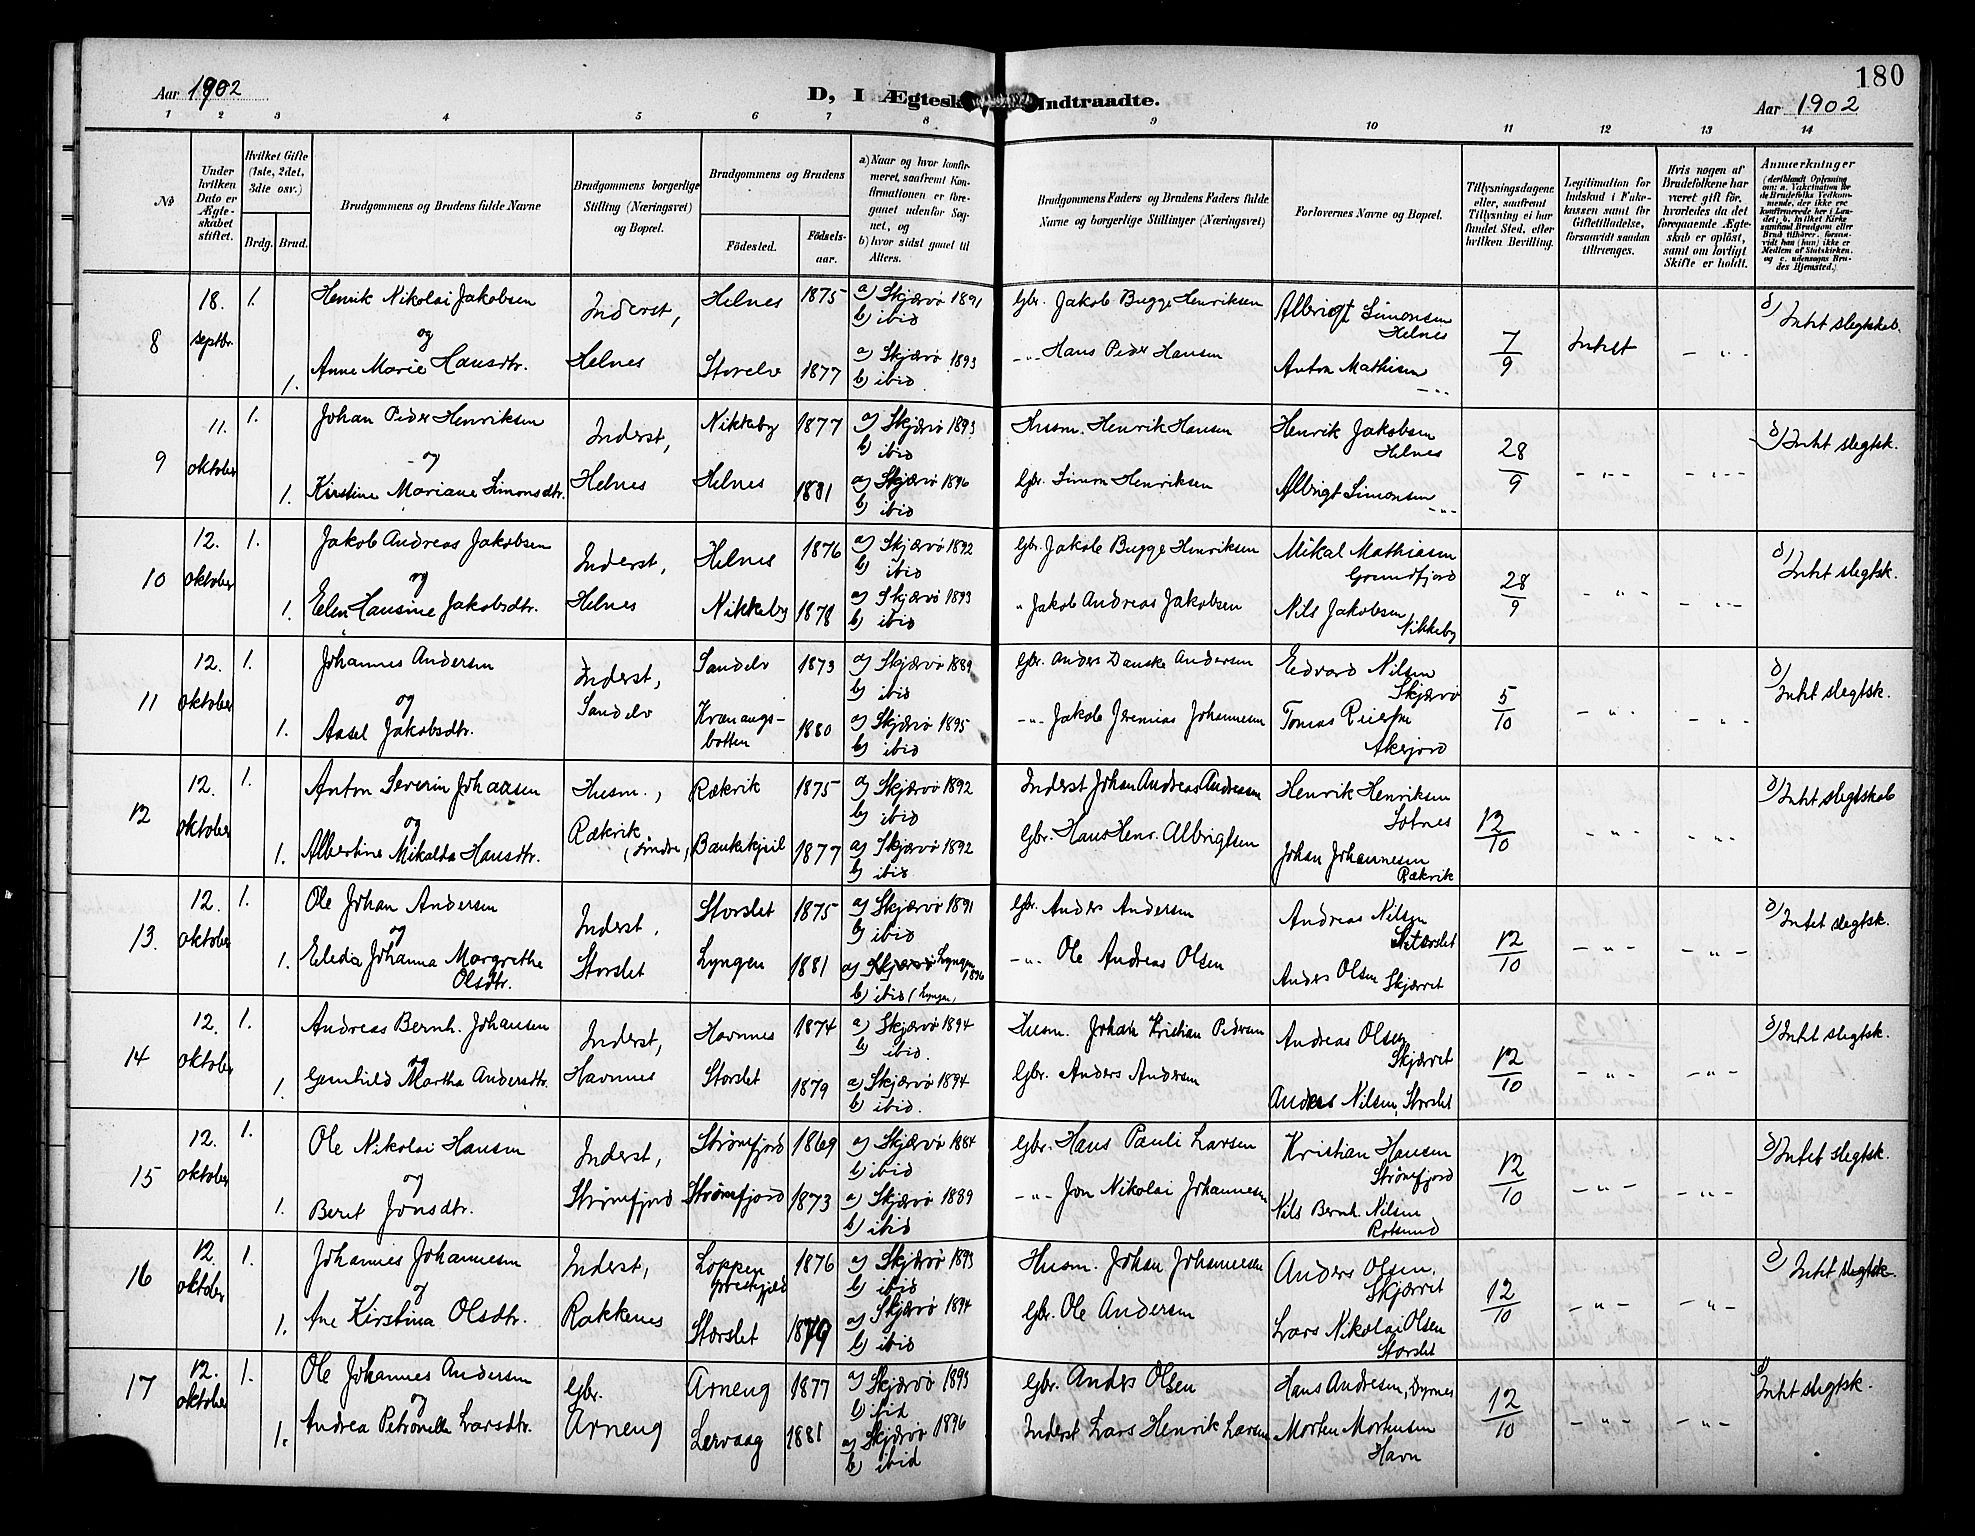 180
Aar 1902
D, I Ægtesk Indtraadte.
Aar 1902
1 2 3 4 5 6 7 8 9 10 11 12 13 14
No
Under hvilken Dato er Ægteskabet stiftet.
Hvilket Gifte (1ste, 2det, 3die osv.)
Brdg. Brud.
Brudgommens og Brudens fulde Navne
Brudgommens borgerlige Stilling (Næringsvei) og Bopæl.
Brudgommens og Brudens
Födested. Födsels-aar.
a) Naar og hvor konfirmeret, saafremt Konfirmationen er foregaaet udenfor Sognet, og
b) hvor sidst gaaet til Alters.
Brudgommens Faders og Brudens Faders fulde Navne og borgerlige Stillinger (Næringsvei)
Forlovernes Navne og Bopæl.
Tillysningsdagene eller, saafremt Tillysning ei har fundet Sted, efter hvilken Bevilling.
Legitimation for Indskud i Enkekassen samt for Giftetilladelse, forsaavidt saadan tiltrænges.
Hvis nogen af Brudefolkene har været gift för, hvorledes da det foregaaende Ægteskab er oplöst, samt om lovligt Skifte er holdt.
Anmærkninger
8 18. septbr. 1. Henrik Nikolai Jakobsen Inderst, Helnes 1875 a) Skjærvø 1891 b) ibid Gbr. Jakob Bugge Henriksen Albrigt Simonsen Helnes 7/9 Intet - " - d) Intet slegtskab.
og
1. Anne Marie Hansdtr. Helnes Storelv 1877 a) Skjærvø 1893 b) ibid - " - Hans Peder Hansen Anton Mathisen - " -
9 11. oktober 1. Johan Peder Henriksen Inderst, Nikkeby 1877 a) Skjærvø 1893 b) ibid Husm. Henrik Hansen Henrik Jakobsen Helnes 28/9 - " - - " - d) Intet slegtsk.
og
1. Kirstine Mariane Simonsdtr. Helnes Helnes 1881 a) Skjærvø 1896 b) ibid Gbr. Simon Henriksen Albrigt Simonsen - " -
10 12. oktober 1. Jakob Andreas Jakobsen Inderst, Helnes 1876 a) Skjærvø 1892 b) ibid Gbr. Jakob Bugge Henriksen Mikal Mathiasen Grundfjord 28/9 - " - - " - d) Intet slegtsk.
og
1. Elen Hansine Jakobsdtr. Helnes Nikkeby 1878 a) Skjærvø 1893 b) ibid " Jakob Andreas Jakobsen Nils Jakobsen Nikkeby
11 12. oktober 1. Johannes Andersen Inderst, Sandelv 1873 a) Skjærvø 1889 b) ibid Gbr. Anders Danske Andersen Edvard Nilsen Skjærvø 5/10 - " - - " - d) Intet slegtsk.
og
1. Aasel Jakobsdtr. Sandelv Kvænangsbotten 1880 a) Skjærvø 1895 b) ibid - " - Jakob Jeremias Johannesen Tomas
12 12. oktober 1. Anton Severin Johansen Husm., Rækvik 1875 a) Skjærvø 1892 b) ibid Inderst Johan Andreas Andreasen Henrik Henriksen 12/10 - " - - " - d) Intet slegtskab
og
1. Albertine Mikalda Hansdtr. Rækvik 1877 a) Skjærvø 1892 b) ibid. Gbr. Hans Henr. Albrigtsen Johan Johannesen Rækvik
13. 12. oktober 1. Ole Johan Andersen Inderst, Storslet 1875 a) Skjærvø 1891 b) ibid Gbr. Anders Andersen Andreas Nilsen Storslet 12/10 - " - - " - d) Intet slegtsk.
og
1. Eleda Johanna Margrethe Olsdtr. Storslet Lyngen 1881 a) Skjærvø Lyngen 1896 b) ibid (Lyngen) - " - Ole Andreas Olsen Anders Olsen Skjærvet
14 12. oktober 1. Andreas Bernh. Johansen Inderst, Havnnes 1874 a) Skjærvø 1894 b) ibid. Husm. Johan Kristian Pedersen Andreas Olsen Skjærvet 12/10 - " - - " - d) Intet slegtsk.
og
1. Gunhild Martha Andersdtr. Havnnes Storslet 1879 a) Skjærvø 1894 b) ibid. Gbr. Anders Andersen Anders Nilsen, Storslet
15 12. oktober 1. Ole Nikolai Hansen Inderst, Strømfjord 1869 a) Skjærvø 1884 b) ibid Gbr. Hans Pauli Larsen Kristian Hansen Strømfjord 12/10 - " - - " - d) Intet slegtsk.
og
1. Beret Jonsdtr. Strømfjord Strømfjord 1873 a) Skjærvø 1889 b) ibid - " - Jon Nikolai Johannesen Nils Bernh. Nilsen Rotsund
16 12. oktober 1. Johannes Johannesen Inderst, Loppen Præstegjeld 1876 a) Skjærvø 1893 b) ibid Husm. Johan Johannesen Anders Olsen, Skjærvet 12/10 - " - - " - d) Intet slegtsk.
og
1. Ane Kirstina Olsdtr. Rakkenes Storslet 1879 a) Skjærvø 1894 b) ibid Gbr. Ole Andersen Lars Nikolai Olsen Storslet
17 12. oktober 1. Ole Johannes Andersen Gbr. Arneng 1877 a) Skjærvø 1893 b) ibid Gbr. Anders Olsen Hans Andresen, Dyrnes 12/10 - " - - " - d) Intet slegtsk.
og
1. Andrea Petronella Larsdtr. Arneng Lervaag 1881 a) Skjærvø 1896 b) ibid Inderst Lars Henrik Larsen Morten Mortensen Havn